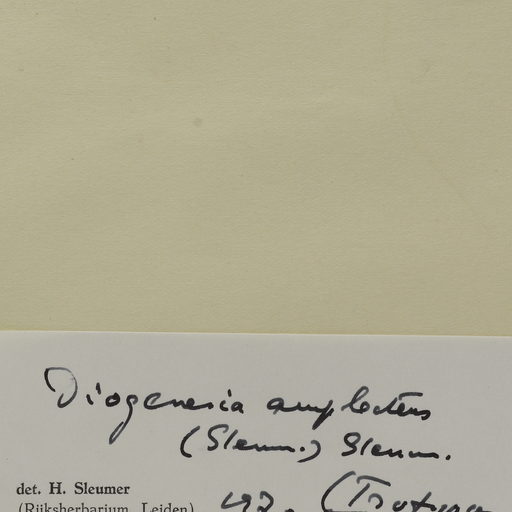 Diogenesia amplectens
(Sleum.) Sleum.
det. H. Sleumer
(Rijksherbarium, Leiden) 197. (Isotype